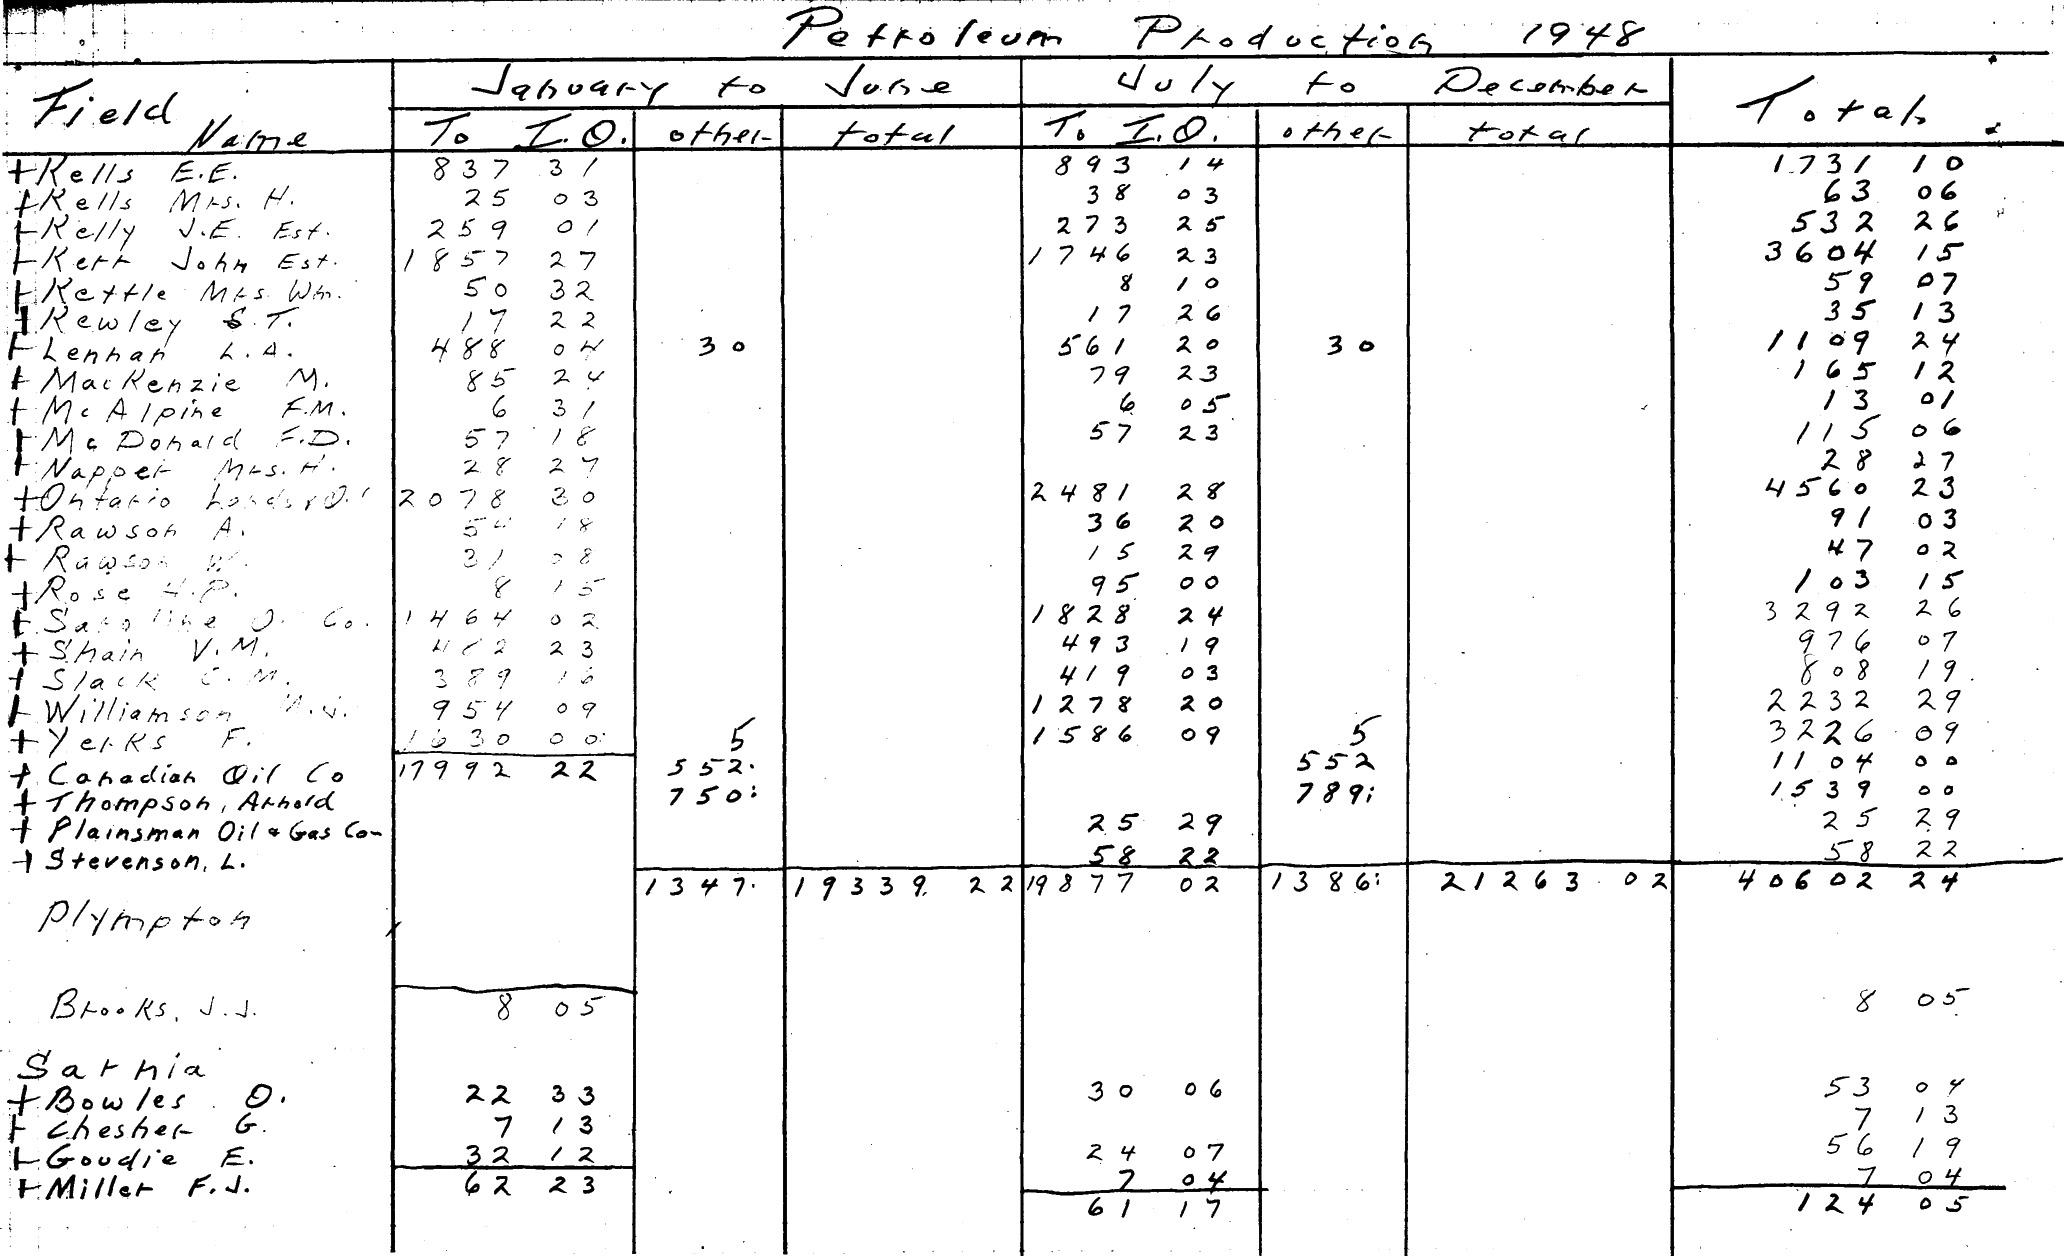 Petroleum Production 1948
Field Name January to June July to December Total
To I.O. other total To I.O. other total
+Kells E.E. 837 31 893 14 1731 10
+Kells Mrs. H. 25 03 38 03 63 06
+Kelly J.E. Est. 259 01 273 25 532 26
+Kerr John Est. 1857 27 1746 23 3604 15
+Kettle Mrs. Wm. 50 32 8 10 59 07
+Kewley S.T. 17 22 17 26 35 13
+Lennan L.A. 488 04 30 561 20 30 1109 24
+MacKenzie M. 85 24 79 23 165 12
+McAlpine F.M. 6 31 6 05 13 01
+McDonald F.D. 57 18 57 23 115 06
+Napper Mrs. H. 28 27 28 27
+Ontario Lands & Oil 2078 30 2481 28 4560 23
+Rawson A. 54 18 36 20 91 03
+Rawson W. 31 08 15 29 47 02
+Rose H.P. 8 15 95 00 103 15
+ O. Co. 1464 02 1828 24 3292 26
+Shain V.M. 482 23 493 19 976 07
+Slack C.M. 389 16 419 03 808 19
+Williamson 954 09 1278 20 2232 29
+Yerks F. 1630 00 5 1586 09 5 3226 09
+Canadian Oil Co 17992 22 552. 552 1104 00
+Thompson, Arnold 750: 789: 1539 00
+Plainsman Oil & Gas Co- 25 29 25 29
+Stevenson, L. 58 22 58 22
1347. 19339. 22 19877 02 1386: 21263 02 40602 24
Plympton
Brooks, J.J. 8 05 8 05
Sarnia
+Bowles O. 22 33 30 06 53 04
+Chesher G. 7 13 7 13
+Goudie E. 32 12 24 07 56 19
+Miller F.J. 62 23 7 04 7 04
61 17 124 05